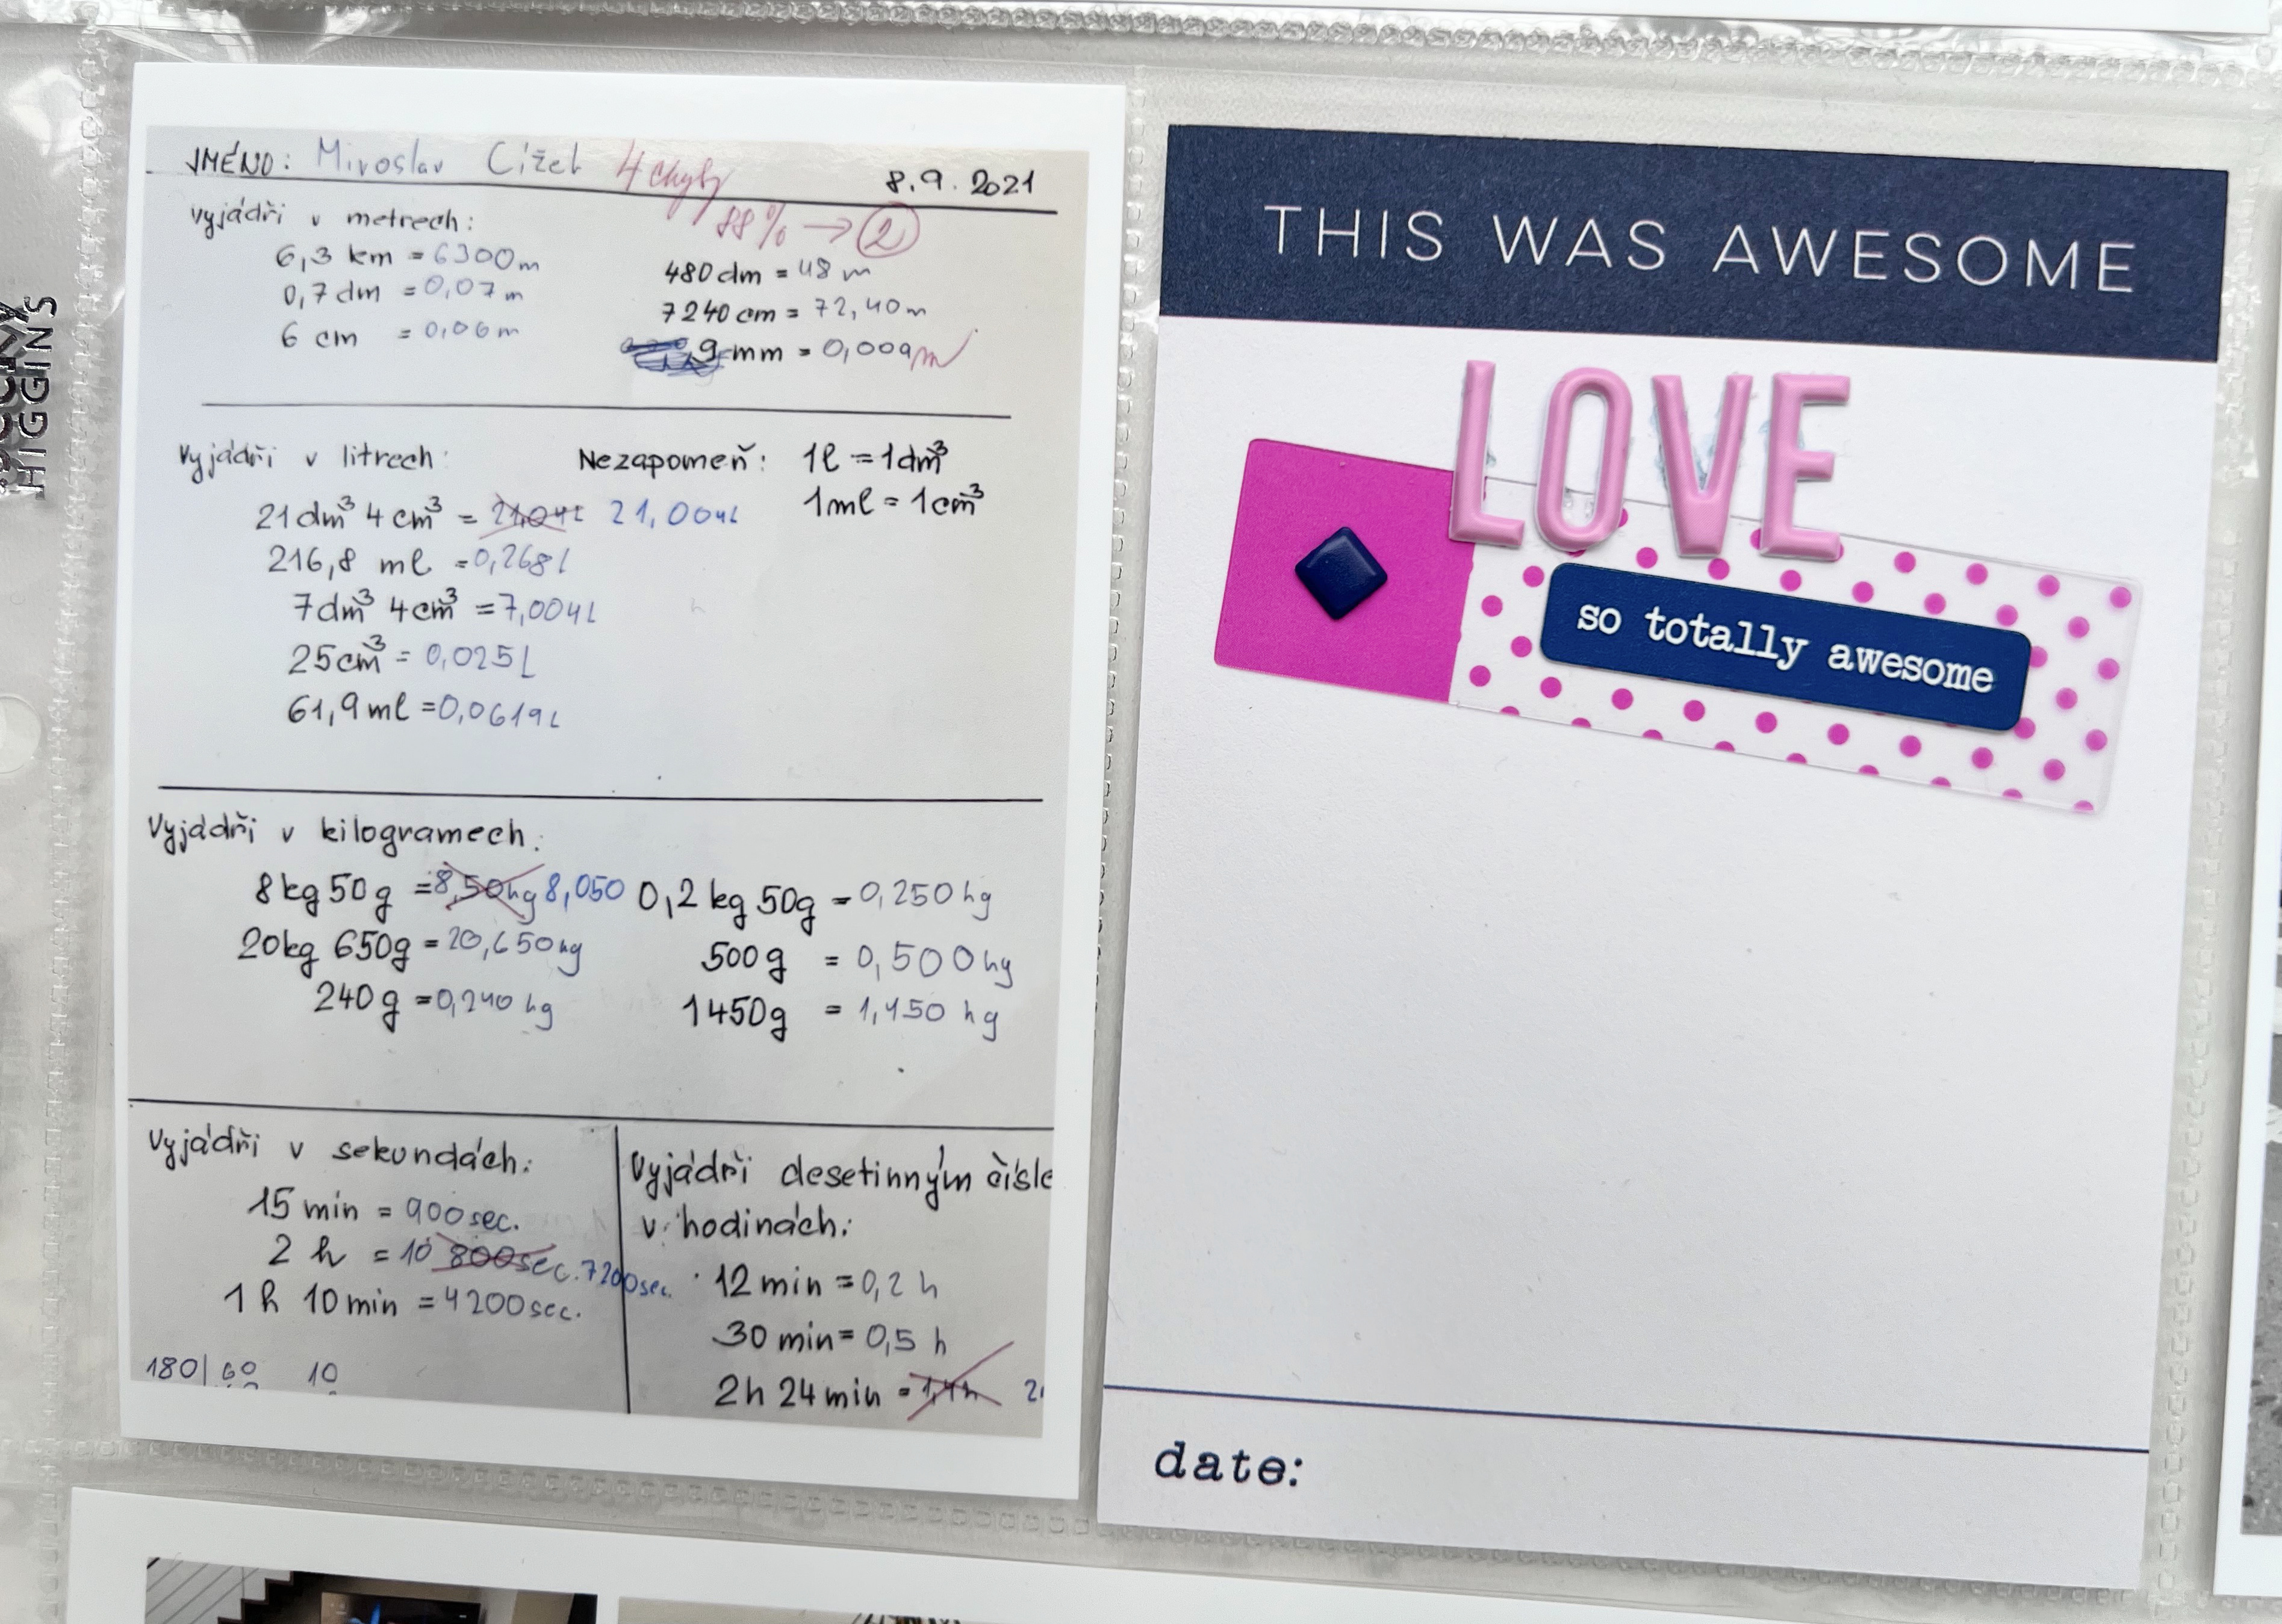 HIGGINS
JMÉNO: Miroslav Cížel 4 chyby 8.9.2021
88% → 2
Vyjádři v metrech:
6,3 km = 6300m
0,7 dm = 0,07 m
6 cm = 0,06 m
480 dm = 48 m
7240 cm = 72,40 m
9 mm = 0,009 m
Vyjádři v litrech:
Nezapomeň: 1l = 1dm³
1ml = 1cm³
21 dm³ 4 cm³ = 21,04L 21,004L
216,8 ml = 0,268 l
7dm³ 4cm³ = 7,004L
25cm³ = 0,025L
61,9 ml = 0,0619L
Vyjádři v kilogramech:
8kg 50g = 8,50kg 8,050
20kg 650g = 20,650kg
240g = 0,240 kg
0,2 kg 50g = 0,250 kg
500g = 0,500 kg
1450g = 1,450 kg
Vyjádři v sekundách:
15 min = 900 sec.
2 h = 10 800 sec. 7200 sec.
1 h 10 min = 4200 sec.
180 | 60 10
Vyjádři desetinným čísle
v hodinách:
12 min = 0,2 h
30 min = 0,5 h
2h 24 min = 1,4h 2,
THIS WAS AWESOME
LOVE
so totally awesome
date: